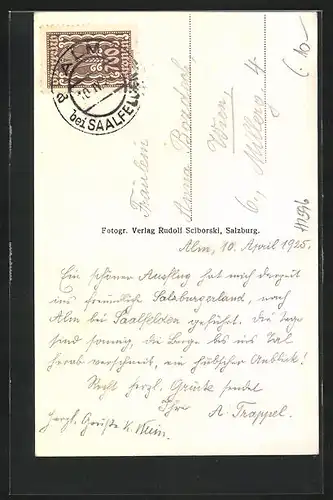 ALM
bei SAALFELDEN
Fräulein
Anna
Wien,
6., Millerg. 4
11396
Fotogr. Verlag Rudolf Sciborski, Salzburg.
Alm, 10. April 1925.
Ein schöner Ausflug hat mich derzeit
ins freundliche Salzburgerland, nach
Alm bei Saalfelden geführt. Die Tage
sind sonnig, die Berge bis ins Tal
herab verschneit, ein hübscher Anblick!
Recht herzl. Grüße sendet
Ihre
A. Trappel.
herzl. Grüße K.